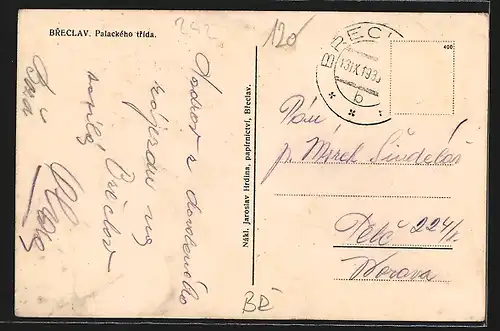 BŘECLAV. Palackého třída.
242
120
BŘECL
13.IX.193
b
400
Pozdrav z dovoleného
zájezdu na
Břeclav
Nákl. Jaroslav Hrdina, papírnictví, Břeclav.
Pán
p. Mirek Šindelář
Telč 224/I.
Morava
BŘ